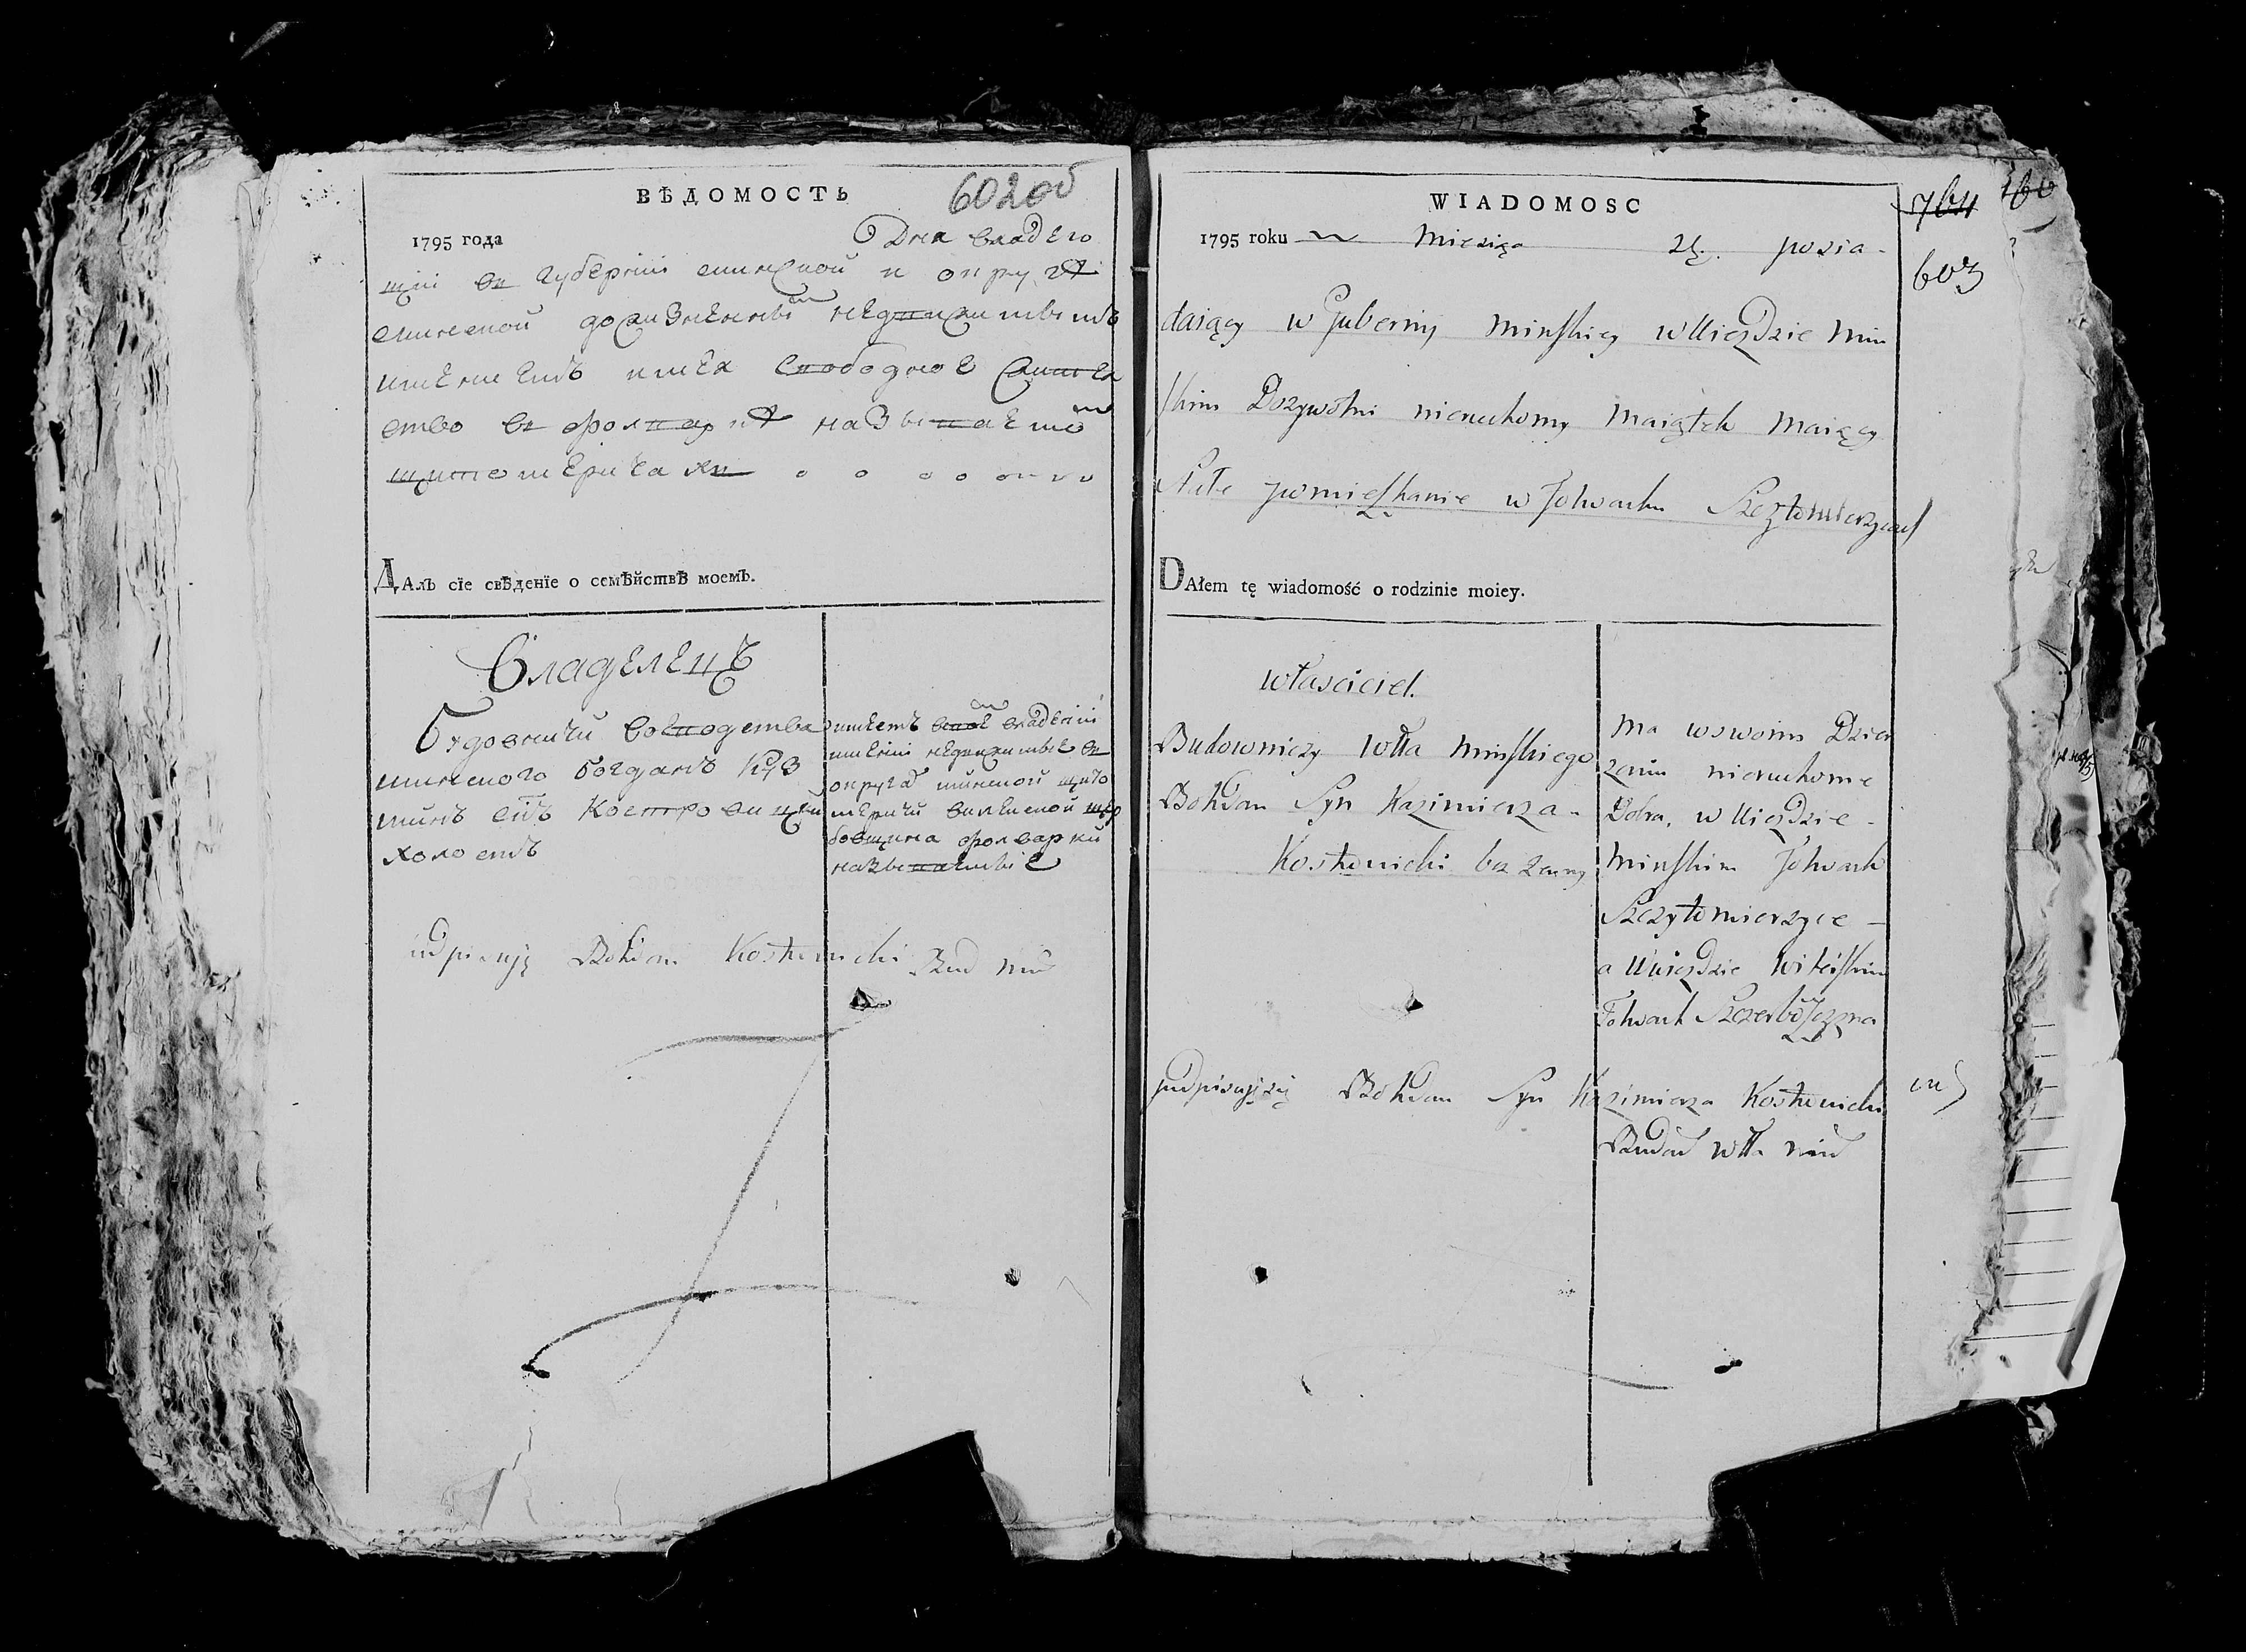 ВѢДОМОСТЬ
602об
1795 года Дня владѣю
щiй въ губернiи минской и округѣ
минской дожизненнымъ недвижимымъ
имениемъ имѣя свободное жител
ство въ фольваркѣ называемомъ
щитомеричахъ
ДАлъ сїе свѣденїе о семѣйствѣ моемъ.
Владелецъ
Будовничи воеводства
минского богданъ
сынъ Костровицки
холостъ
имѣетъ владѣнiи
имѣнiи недвижимые въ
округѣ минской щито
меричи вилѣиской щер
бовщина фолварки
называемые
Bohdan Kostrowicki Bud
WIADOMOSC
764
603
1795 roku Miesiąca posia-
daiący w Gubernij Minskiey w Uiezdzie Min
skim Dozywotni nieruchomy Maiątek Maiący
Stałe pomieszkanie w Folwarku Szczytomierzycach
DAłem tę wiadomość o rodzinie moiey.
właściciel.
Budowniczy Wttwa Minskiego
Bohdan Syn Kazimierza
Kostrowicki bez Zenny
Ma w swoim Dzier
zeniu nieruchome
Dobra, w Uiezdzie
Minskim Folwark
Szczytomierzyce
a w Uiezdzie Wileyskim
Folwark Szczerbowszczyzna
podpisuję się Bohdan Syn Kazimierza Kostrowicki